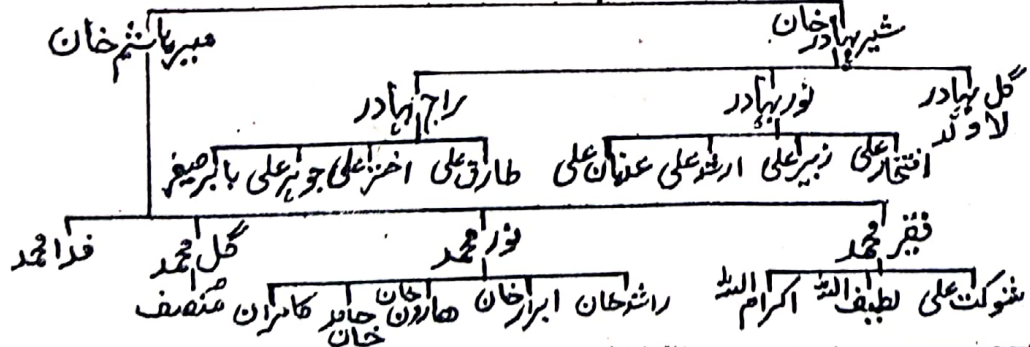 شیر بہادر خان میر ہاشم خان
گل بہادر نور بہادر راج بہادر
لا ولد
افتخار علی زبیر علی ارشد علی عثمان علی طارق علی اختر علی جوہر علی بابر صغیر
فقیر محمد نور محمد گل محمد فدا محمد
شوکت علی لطیف اللہ اکرام اللہ راشد خان ابرار خان ھارون خان حامد خان کامران منصف